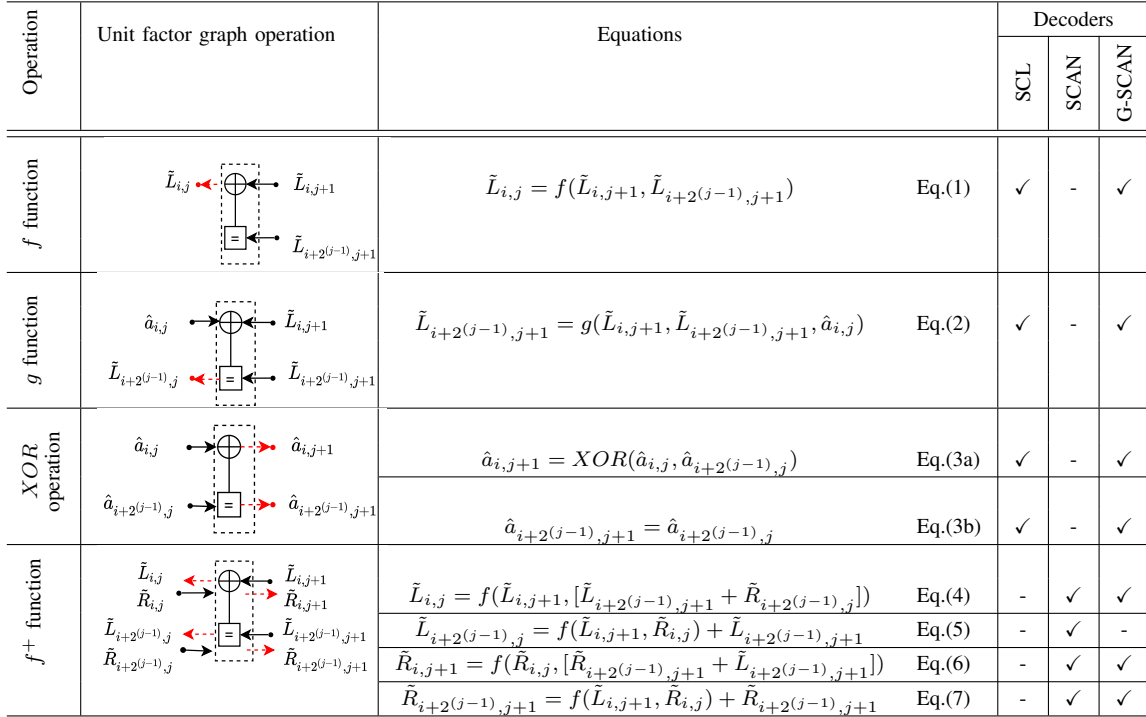 Operation
Unit factor graph operation
Equations
Decoders
SCL
SCAN
G-SCAN
f function
L̃_{i,j}
L̃_{i,j+1}
=
L̃_{i+2^{(j−1)},j+1}
L̃_{i,j} = f(L̃_{i,j+1}, L̃_{i+2^{(j−1)},j+1}) Eq.(1) ✓ - ✓
g function
â_{i,j}
L̃_{i,j+1}
L̃_{i+2^{(j−1)},j}
=
L̃_{i+2^{(j−1)},j+1}
L̃_{i+2^{(j−1)},j+1} = g(L̃_{i,j+1}, L̃_{i+2^{(j−1)},j+1}, â_{i,j}) Eq.(2) ✓ - ✓
XOR
operation
â_{i,j}
â_{i,j+1}
â_{i+2^{(j−1)},j}
=
â_{i+2^{(j−1)},j+1}
â_{i,j+1} = XOR(â_{i,j}, â_{i+2^{(j−1)},j}) Eq.(3a) ✓ - ✓
â_{i+2^{(j−1)},j+1} = â_{i+2^{(j−1)},j} Eq.(3b) ✓ - ✓
f⁺ function
L̃_{i,j}
L̃_{i,j+1}
R̃_{i,j}
R̃_{i,j+1}
L̃_{i+2^{(j−1)},j}
=
L̃_{i+2^{(j−1)},j+1}
R̃_{i+2^{(j−1)},j}
R̃_{i+2^{(j−1)},j+1}
L̃_{i,j} = f(L̃_{i,j+1}, [L̃_{i+2^{(j−1)},j+1} + R̃_{i+2^{(j−1)},j}]) Eq.(4) - ✓ ✓
L̃_{i+2^{(j−1)},j} = f(L̃_{i,j+1}, R̃_{i,j}) + L̃_{i+2^{(j−1)},j+1} Eq.(5) - ✓ -
R̃_{i,j+1} = f(R̃_{i,j}, [R̃_{i+2^{(j−1)},j+1} + L̃_{i+2^{(j−1)},j+1}]) Eq.(6) - ✓ ✓
R̃_{i+2^{(j−1)},j+1} = f(L̃_{i,j+1}, R̃_{i,j}) + R̃_{i+2^{(j−1)},j+1} Eq.(7) - ✓ ✓